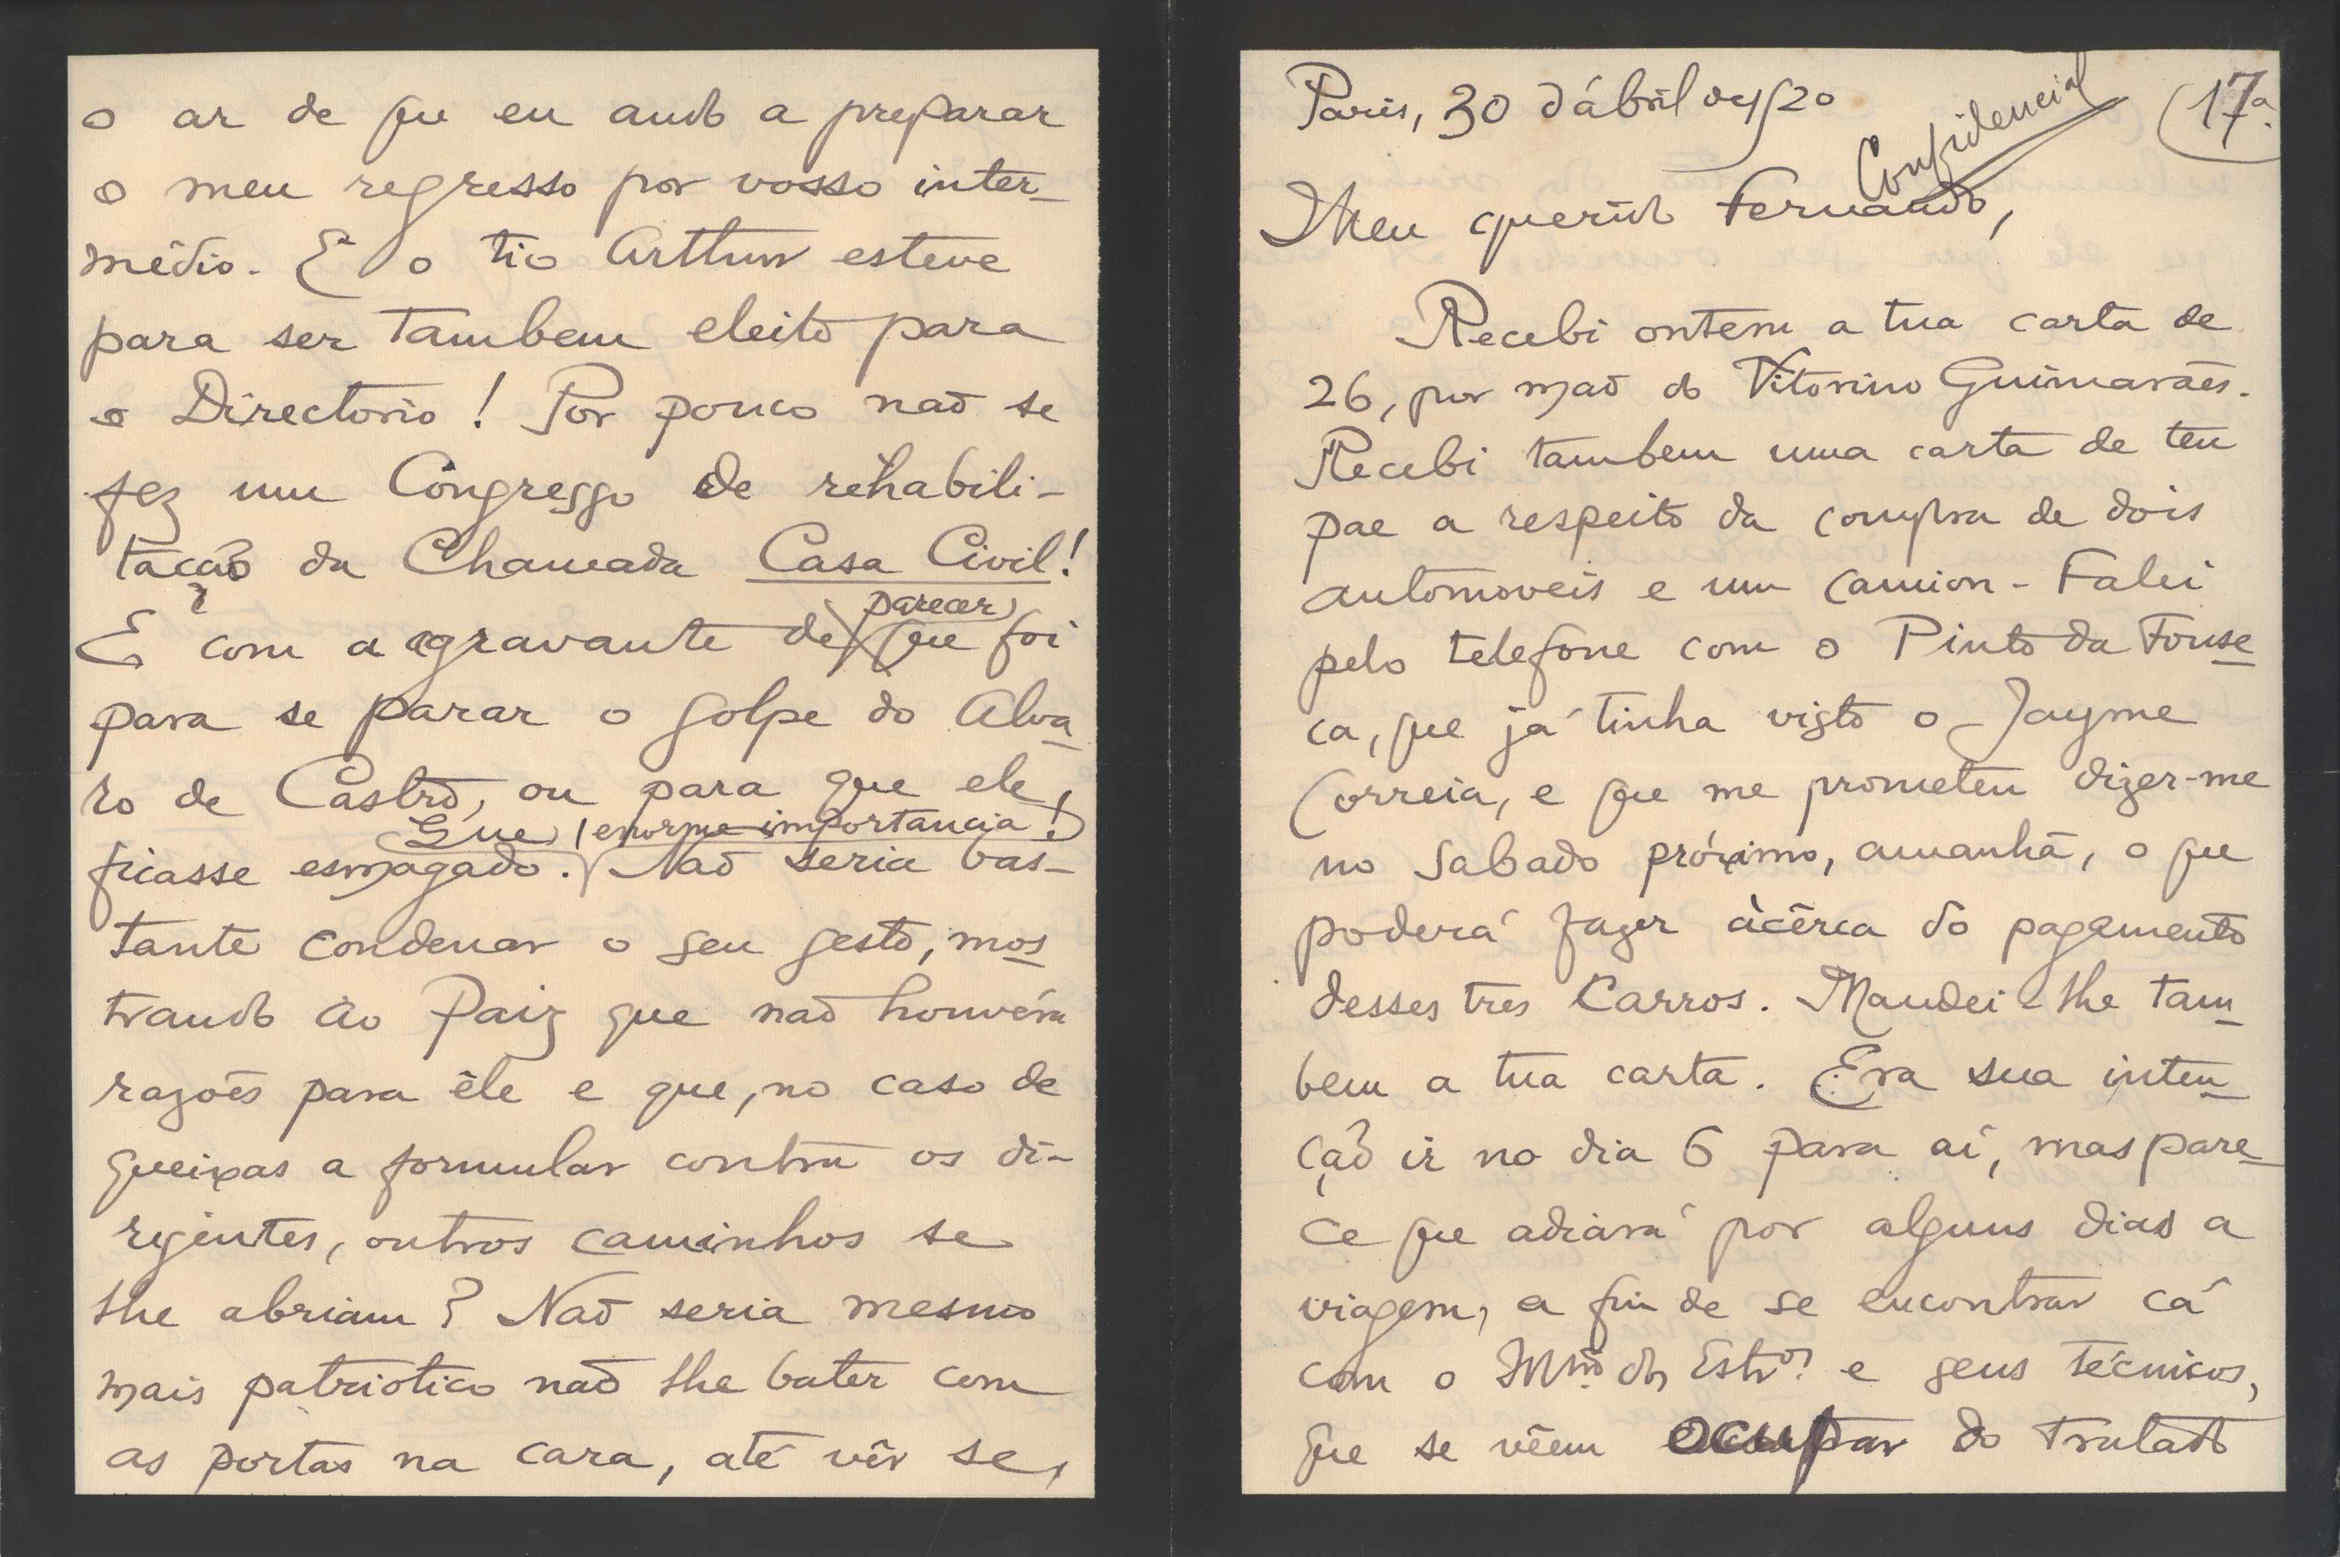 o ar de que eu ando a preparar
o meu regresso por vosso inter-
médio. E o tio Arthur esteve
para ser tambem eleito para
o Directorio! Por pouco não se
fez um Congresso de rehabili-
tação da Chamada Casa Civil!
parecer
E com a agravante de que foi
para se parar o golpe do Alva-
ro de Castro, ou para que ele
Que enorme importancia!
ficasse esmagado. Não seria bas-
tante condenar o seu gesto, mos-
trando ao Paiz que não houvéra
razões para êle e que, no caso de
queixas a formular contra os di-
rijentes, outros caminhos se
lhe abriam? Não seria mesmo
mais patriotico não lhe bater com
as portas na cara, até vêr se,
Paris, 30 d'ábril de 920
Confidencial
(17ª
Meu querido Fernando,
Recebi ontem a tua carta de
26, por mão do Vitorino Guimarães.
Recebi tambem uma carta de teu
pae a respeito da compra de dois
automoveis e um camion - Falei
pelo telefone com o Pinto da Fonse-
ca, que já tinha visto o Jayme
Correia, e que me prometeu dizer-me
no sabado próximo, amanhã, o que
poderá fazer àcêrca do pagamento
desses tres Carros. Mandei-lhe tam-
bem a tua carta. Era sua inten-
ção ir no dia 6 para aí, mas pare-
ce que adiará por alguns dias a
viagem, a fim de se encontrar cá
com o Mnº dos Estros e seus técnicos,
que se vêem ocupar do tratado